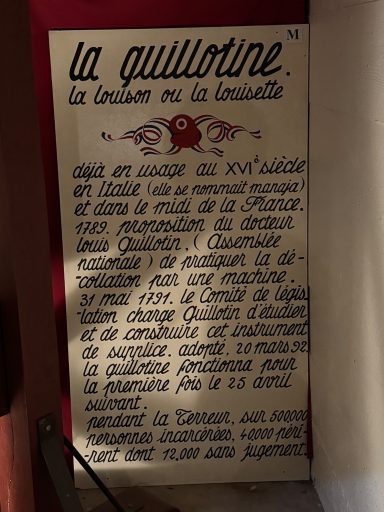 M
la guillotine.
la louison ou la louisette
déjà en usage au XVIè siècle
en Italie (elle se nommait manaja)
et dans le midi de la France.
1789. proposition du docteur
louis Guillotin, (Assemblée
nationale) de pratiquer la dé-
-collation par une machine.
31 mai 1791. le Comité de légis
-lation charge Guillotin d'étudier
et de construire cet instrument
de supplice. adopté, 20 mars 92.
la guillotine fonctionna pour
la première fois le 25 avril
suivant.
pendant la Terreur, sur 500,000
personnes incarcérées, 40,000 péri-
-rent dont 12,000 sans jugement.